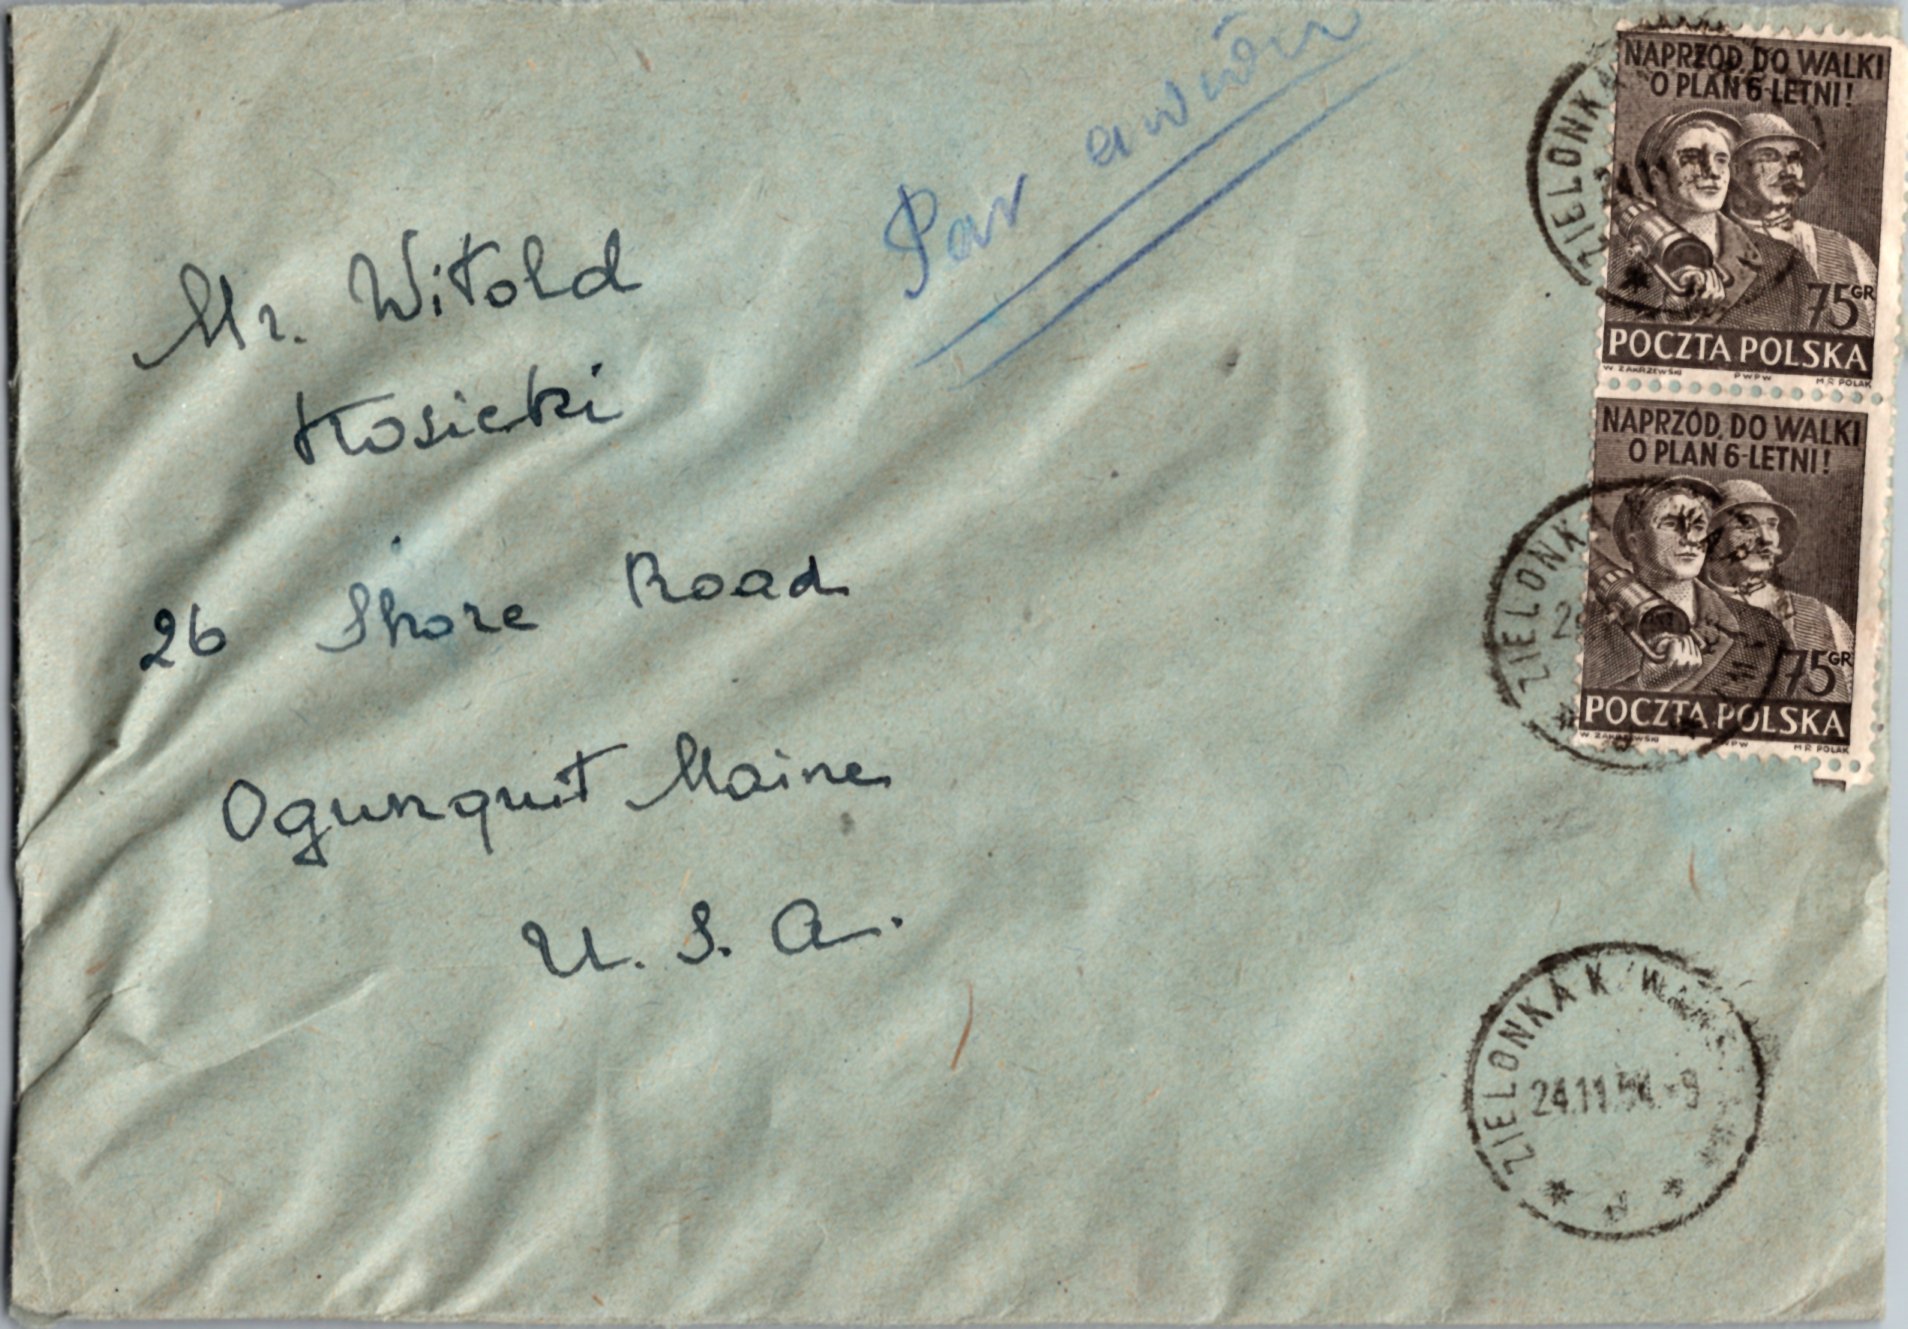 Par avion
Mr. Witold
Kosicki
26 Shore Road
Ogunquit Maine
U. S. A.
NAPRZÓD, DO WALKI
O PLAN 6-LETNI!
75 GR
POCZTA POLSKA
W. ZAKRZEWSKI PWPW M.R. POLAK
NAPRZÓD, DO WALKI
O PLAN 6-LETNI!
75 GR
POCZTA POLSKA
W. ZAKRZEWSKI PWPW M.R. POLAK
ZIELONKA
ZIELONKA
ZIELONKA K/W
24.11.51.-9